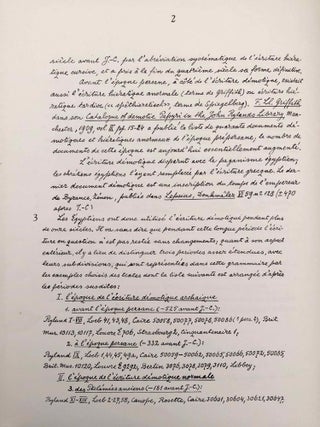 2
siècle avant J.-C. par l'abréviation systématique de l'écriture hiéra-
tique cursive, et a pris à la fin du quatrième siècle sa forme définitive.
Avant l'époque persane, à côté de l'écriture démotique, existait
aussi l'écriture hiératique anormale (terme de Griffith) ou écriture hié-
ratique tardive (« spéthieratisch», terme de Spiegelberg). F. Ll. Griffith
dans son Catalogue of demotic Papyri in the John Rylands Library, Man-
chester, 1909, vol. III, pp. 15-24 a publié la liste de quarante documents dé-
motiques et hiératiques anormaux de l'époque préperse, le nombre de
documents de cette époque est aujourd'hui essentiellement augmenté.
L'écriture démotique disparut avec le paganisme égyptien;
les chrétiens égyptiens l'ayant remplacée par l'écriture grecque. Le der-
nier document démotique est une inscription du temps de l'empereur
de Byzance, Zénon, publiée dans Lepsius, Denkmäler
après J.-C.
3 Les Égyptiens ont donc utilisé l'écriture démotique pendant plus
de onze siècles. Il va sans dire que pendant cette longue période l'écri-
ture en question n'est pas restée sans changements; quant à son aspect
extérieur, il y a lieu de distinguer trois périodes assez étendues, avec
leurs subdivisions, qui sont représentées dans cette grammaire par
les exemples choisis des textes dont la liste suivante est arrangée d'après
les périodes susdites:
I. l'époque de l'écriture démotique archaïque
1. avant l'époque persane (-525 avant J.-C.):
Ryland I-VIII, Loeb 41, 43, 48, Caire
Mus. 10113, 10117, Louvre E 706, Strasbourg 2, cinquantenaire 1,
2. à l'époque persane (-332 avant J.-C.):
Ryland IX, Loeb 1, 44, 45, 49a, Caire 50059-50062, 50065, 50066, 50072, 50085,
Brit. Mus. 10120, Louvre E 9292, Berlin 3076, 3078, 3079, 3110, Libbey;
II. l'époque de l'écriture démotique normale
3. des Ptolémées anciens (-181 avant J.-C.):
Ryland XI-XIV, Loeb 2-27, 58, Canope, Rosette, Caire 30601, 30604, 30621, 30647,